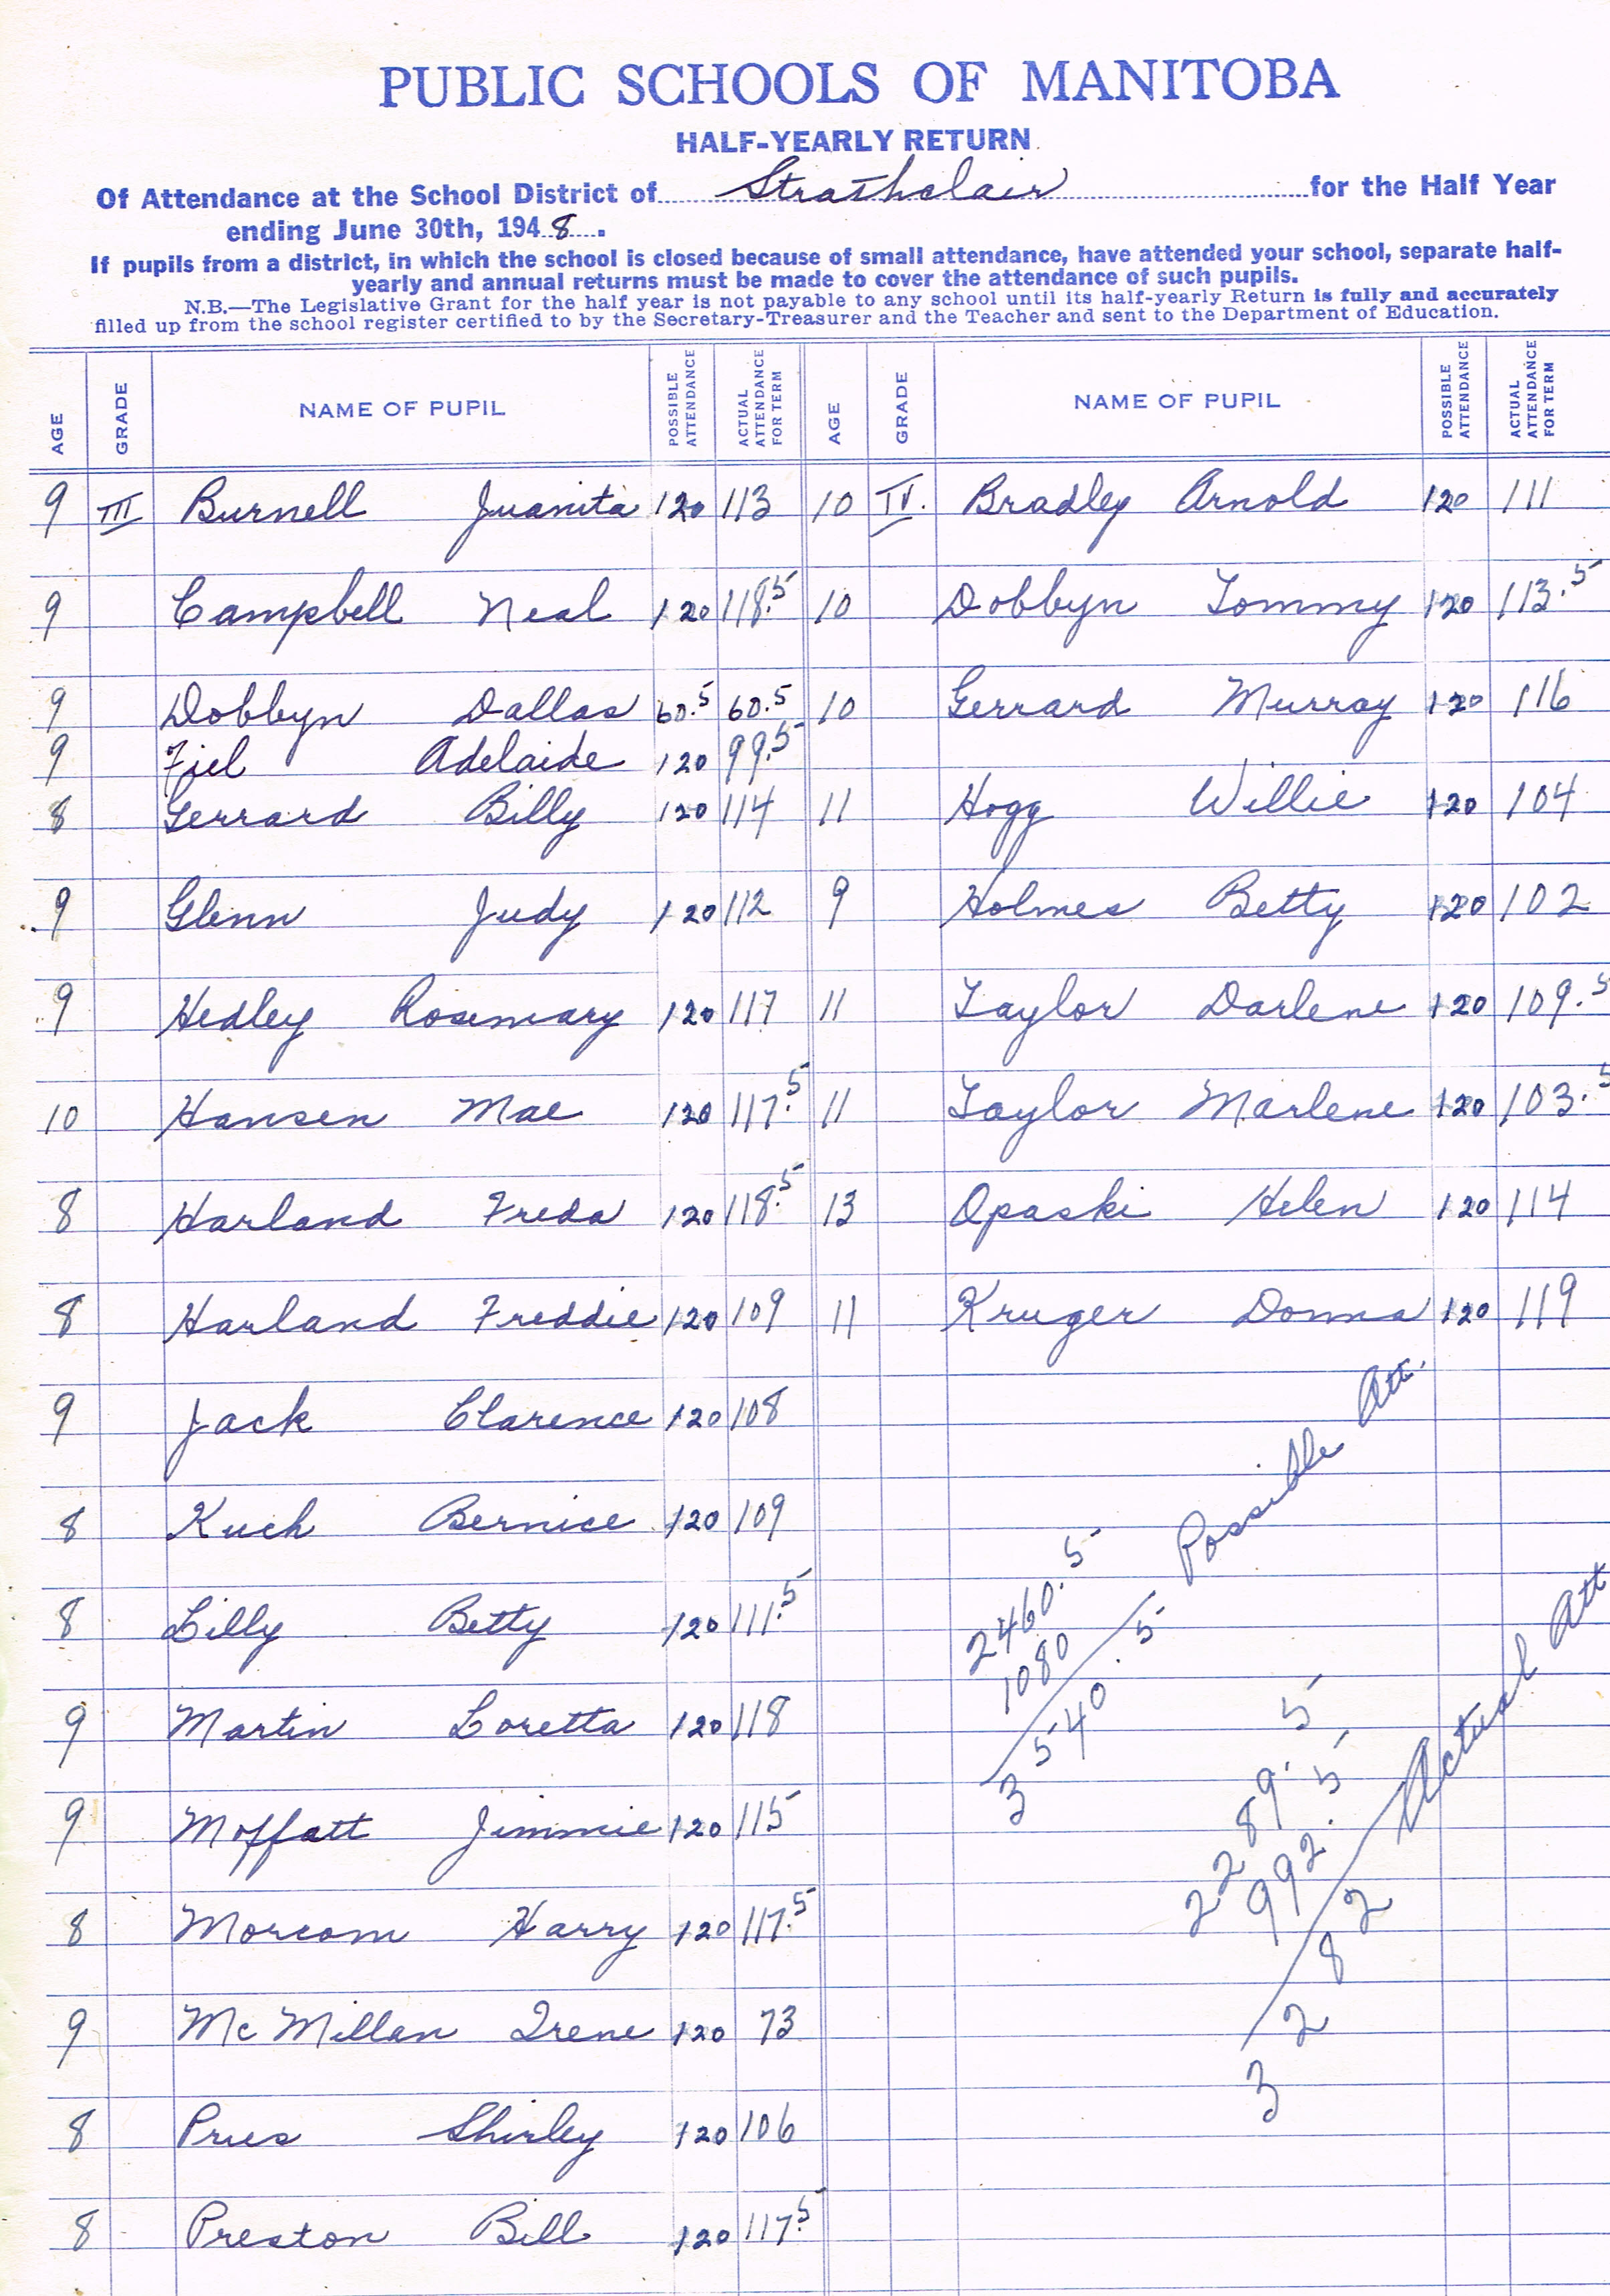 PUBLIC SCHOOLS OF MANITOBA
HALF-YEARLY RETURN
Of Attendance at the School District of Strathclair for the Half Year
ending June 30th, 1948.
If pupils from a district, in which the school is closed because of small attendance, have attended your school, separate half-
yearly and annual returns must be made to cover the attendance of such pupils.
N.B.—The Legislative Grant for the half year is not payable to any school until its half-yearly Return is fully and accurately
filled up from the school register certified to by the Secretary-Treasurer and the Teacher and sent to the Department of Education.
AGE GRADE NAME OF PUPIL POSSIBLE ATTENDANCE ACTUAL ATTENDANCE FOR TERM AGE GRADE NAME OF PUPIL POSSIBLE ATTENDANCE ACTUAL ATTENDANCE FOR TERM
9 III Burnell Juanita 120 113 10 IV. Bradley Arnold 120 111
9 Campbell Neal 120 118.5 10 Dobbyn Tommy 120 113.5
9 Dobbyn Dallas 60.5 60.5 10 Gerrard Murray 120 116
9 Fiel Adelaide 120 99.5
8 Gerrard Billy 120 114 11 Hogg Willie 120 104
9 Glenn Judy 120 112 9 Holmes Betty 120 102
9 Hedley Rosemary 120 117 11 Taylor Darlene 120 109.5
10 Hansen Mae 120 117.5 11 Taylor Marlene 120 103.5
8 Harland Freda 120 118.5 13 Opaski Helen 120 114
8 Harland Freddie 120 109 11 Kruger Donna 120 119
9 Jack Clarence 120 108
8 Kuch Bernice 120 109
8 Lilly Betty 120 111.5
9 Martin Loretta 120 118
9 Moffatt Jimmie 120 115
8 Morcom Harry 120 117.5
9 McMillan Irene 120 73
8 Pries Shirley 120 106
8 Preston Bill 120 117.5
2460.5
1080
3540.5 Possible Att.
2289.5
992.5
3282 Actual Att